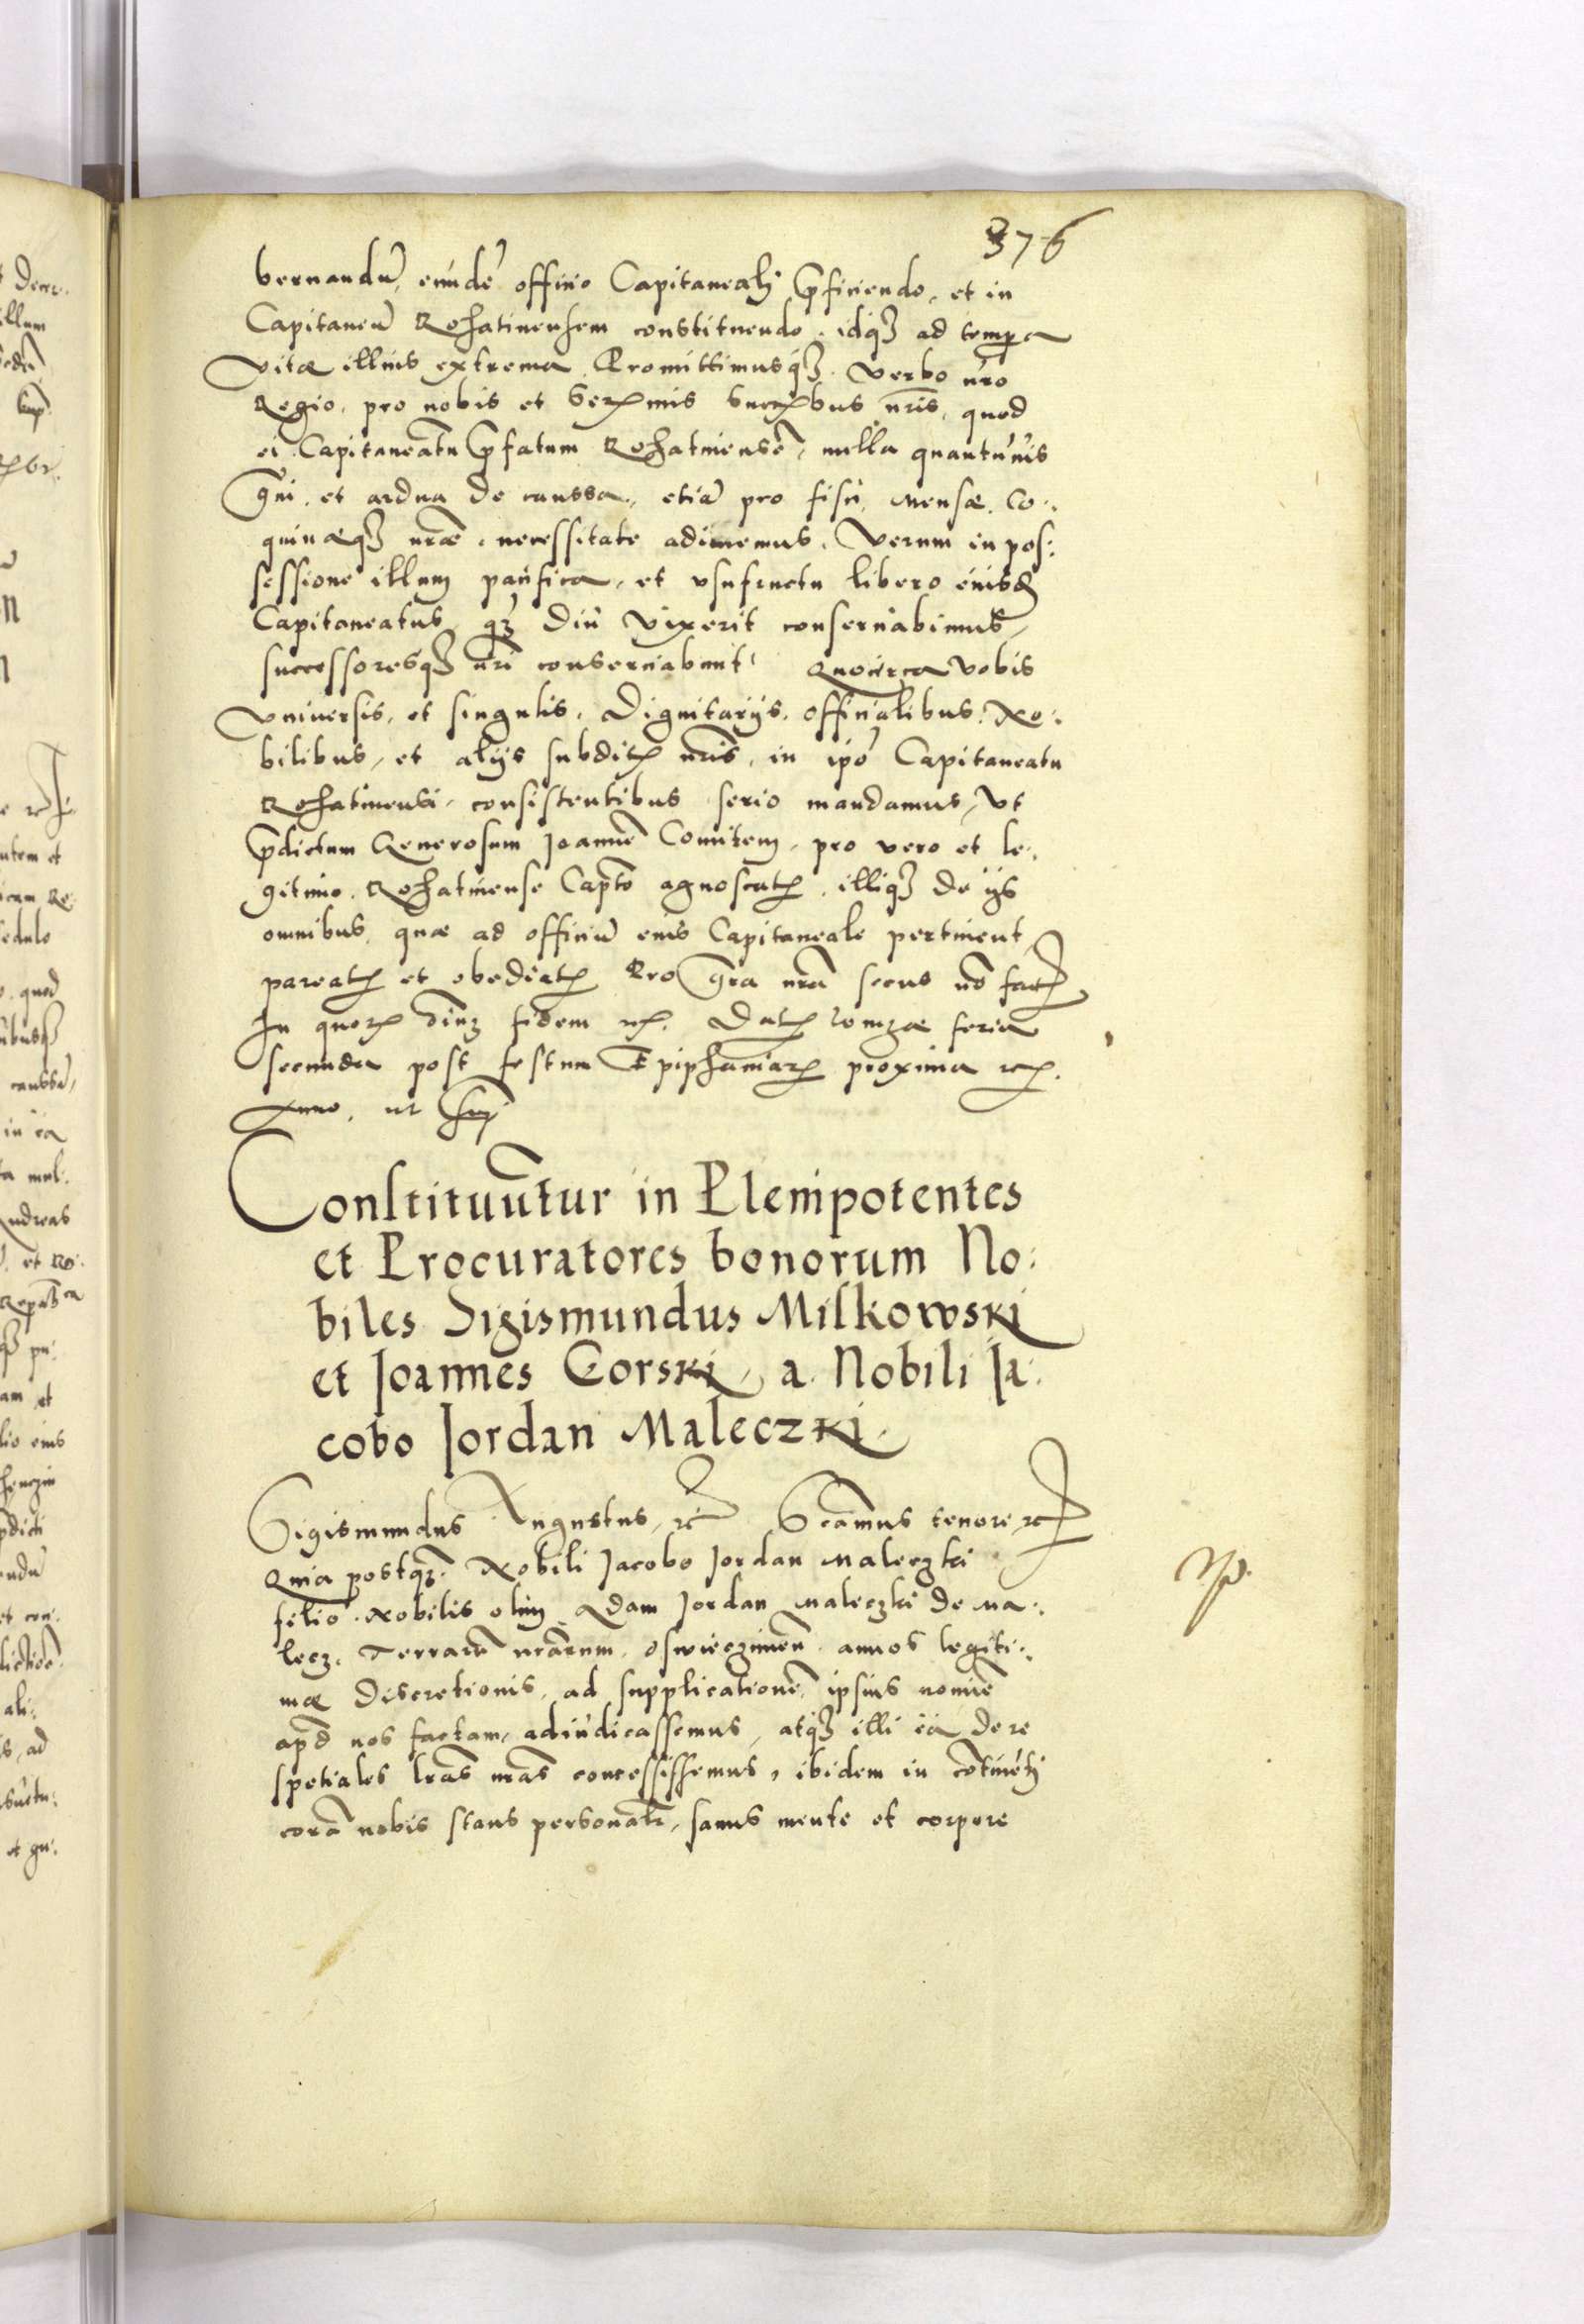 376
bernandũ, eũdẽ officio Capitaneali p̃ficiendo, et in
Capitaneũ Rohatinensem constituendo, idq̃ ad tempora
vitæ illius extrema. Promittimusq̃ verbo nr̃o
Regio, pro nobis et Sermis Succrbus nr̃is, quod
ei Capitaneatũ p̃fatum Rohatinensẽ, nulla quantũuis
gr̃ui et ardua de caussa, etiã pro fisci, mensæ, Co:
quinæq̃ nr̃æ, necessitate adimemus, verum in pos:
sessione illum pacifica, et vsufructu libero eiusd
Capitaneatus, q̃ diu vixerit conseruabimus,
successoresq̃ nr̃i conseruabunt. Quocirca vobis
vniuersis, et singulis, Dignitarijs, officialibus, No:
bilibus, et alijs subditis nr̃is, in ipõ Capitaneatu
Rohatinensi consistentibus serio mandamus, vt
p̃dictum Generosum Joannẽ Comitem, pro vero et le:
gitimo Rohatinense Capto agnoscatis, illiq̃ de ijs
omnibus, quæ ad officiũ eius Capitaneale pertinent
pareatis et obediatis Pro gr̃a nr̃a secus nõ factur
In quorum fidem etc. Datum Lomzæ feria
secunda post festum Epiphaniarum proxima etc.
Anno, ut supra
Constituuñtur in Plenipotentes
et Procuratores bonorum No:
biles Sigismundus Milkowski
et Joannes Gorski, a Nobili Ja:
cobo Jordan Maleczki.
Sigismundus Augustus, etc Sc̃amus tenore etc
Quia postq̃ Nobili Jacobo Jordan Maleczki
filio Nobilis olim Adam Jordan Maleczki de Ma:
lecz, Terrarũ nr̃arum, oswieczimeñ annos legiti:
mæ discretionis, ad supplicationẽ ipsius nomiẽ
apd nos factam, adiudicassemus, atq̃ illi ea de re
spetiales lr̃as nr̃as concessissemus, ibidem in contineti
corã nobis stans personalr, sanus mente et corpore